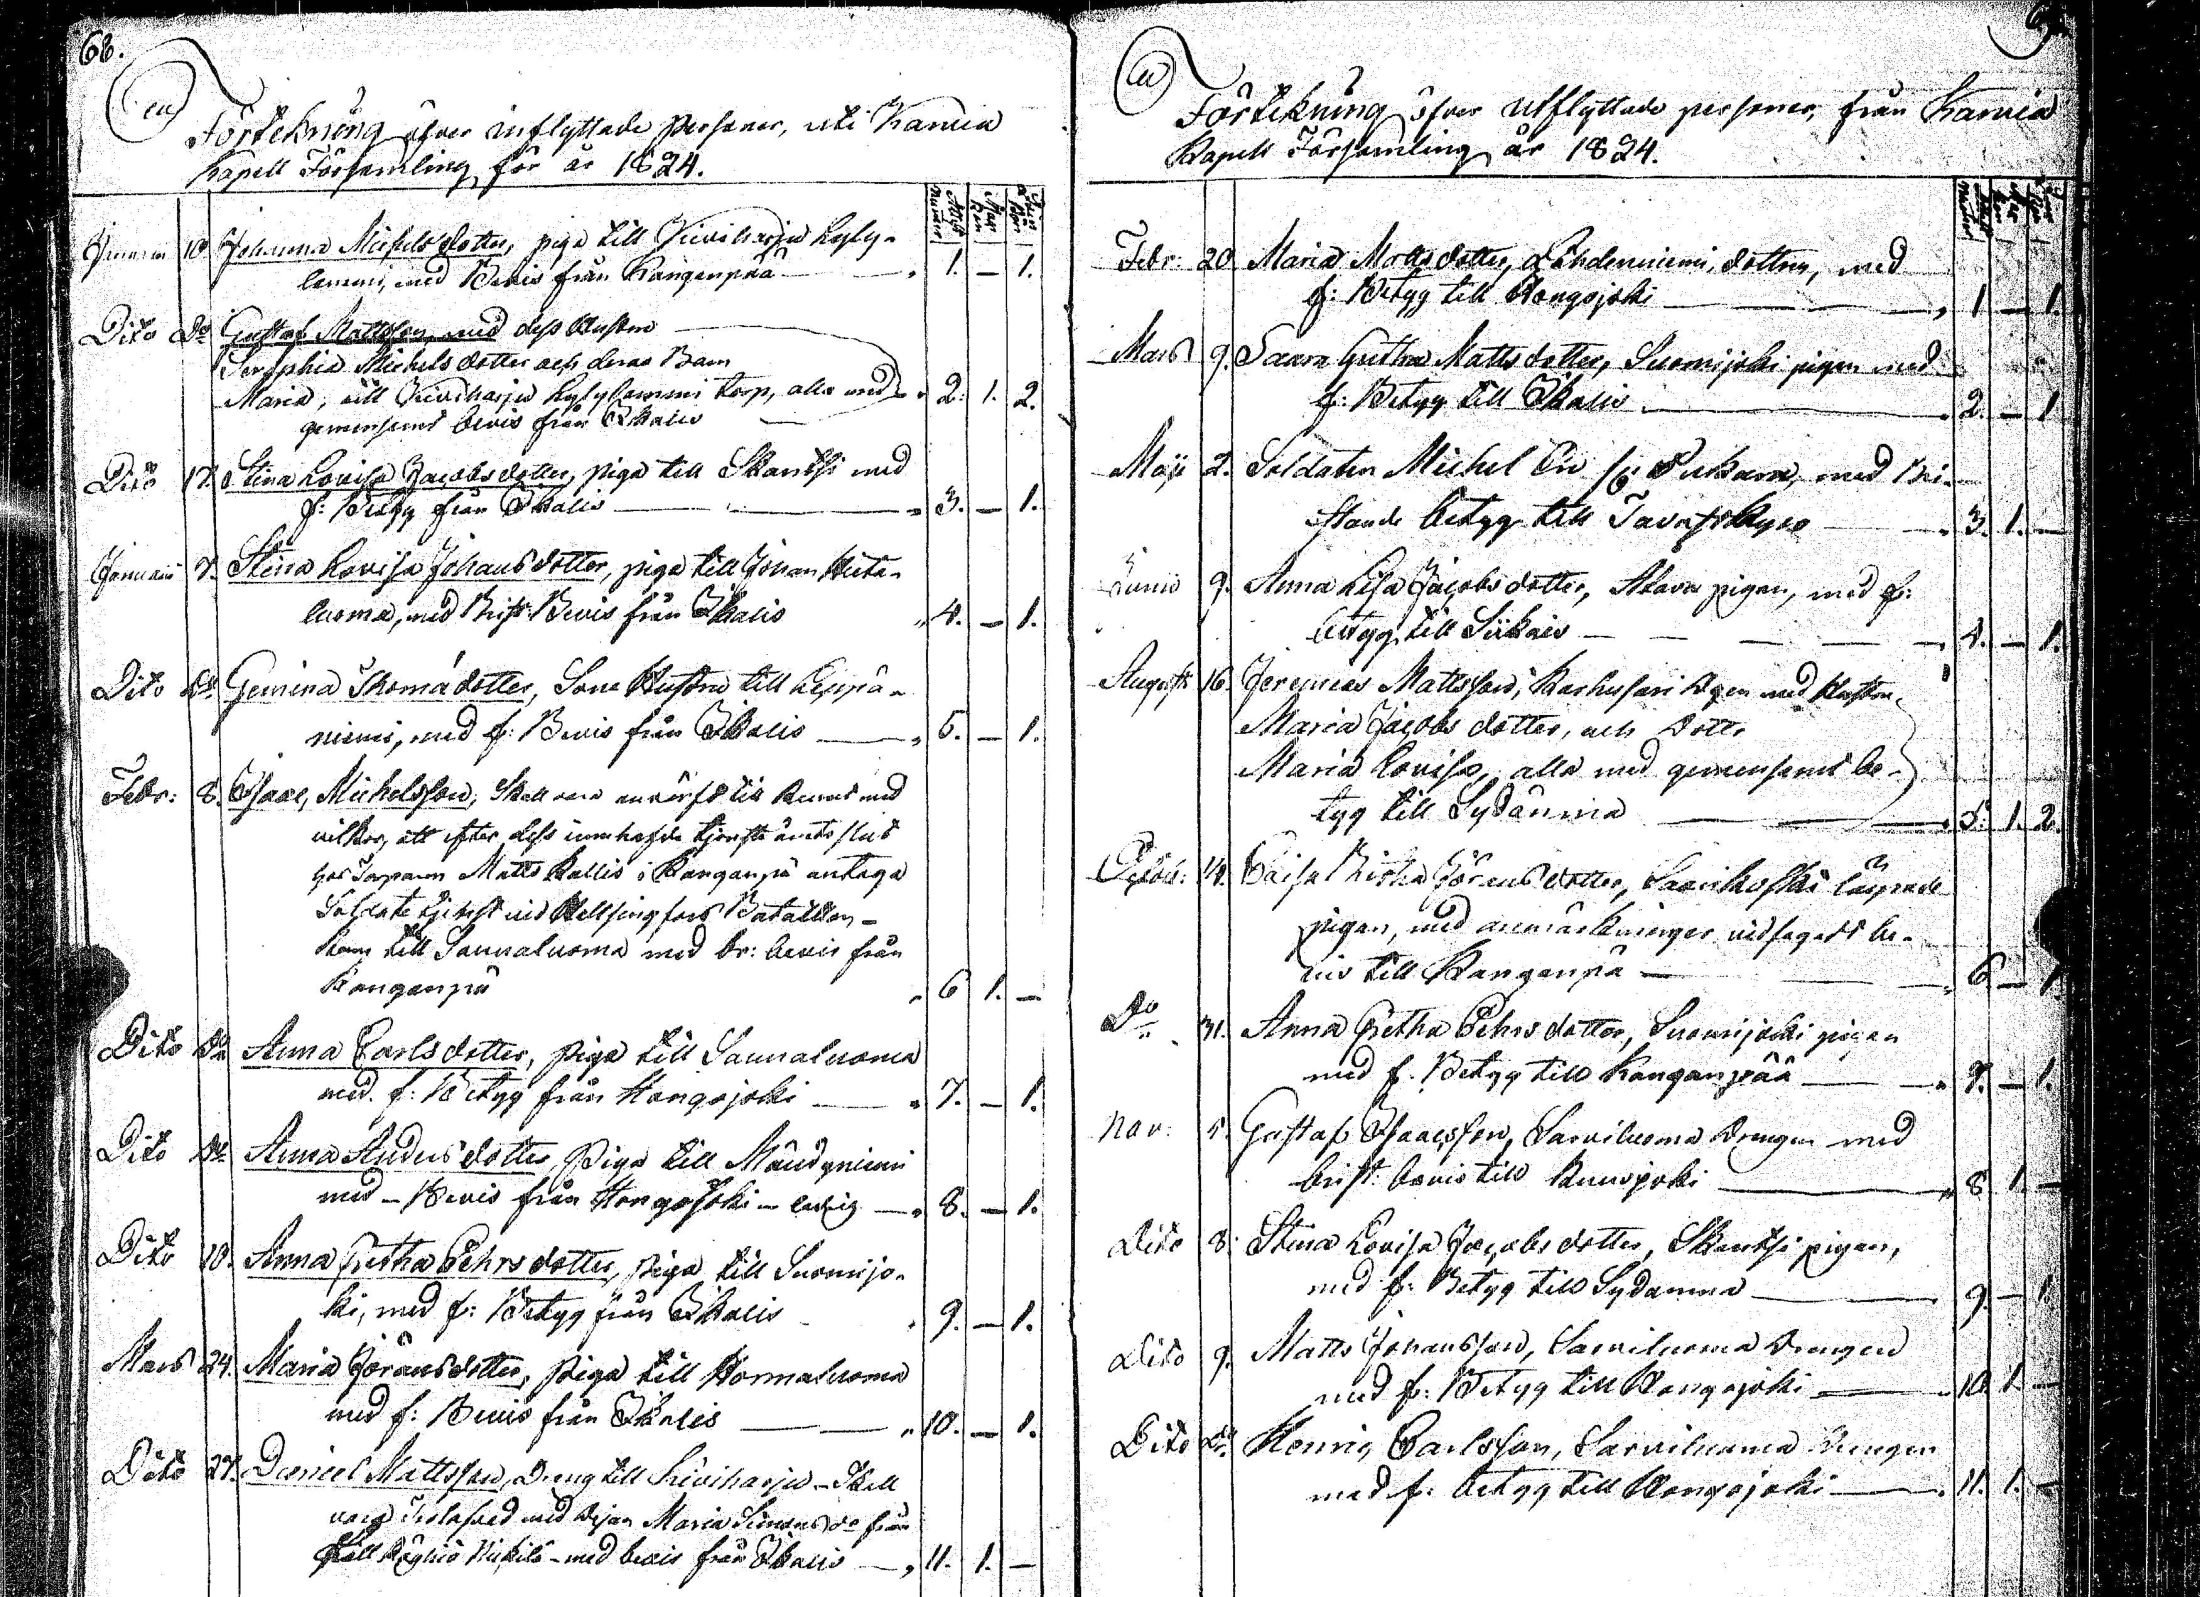 68.
Förtekning öfver inflyttade Personer, uti Kanvia
Kapell Församling för år 1824.
Attest Numro Mankön Qvinkön
Januari 10 Johanna Michelsdotter, piga till Kiviharju Kyly-
lammi, med Bevis från Kanganpää — 1. — 1.
Dito Do Gustaf Mattsson, med dess Hustru
Sophia Michelsdotter och deras Barn
Maria, till Kiviharju Kylylammi torp, alla med 2. 1. 2.
gemensamt bevis från Ikalis
Dito 17. Stina Lovisa Jacobsdotter, piga till Skantsi med
f: Betyg från Ikalis — 3. — 1.
Januari 7. Stina Lovisa Johansdotter, piga till Johan Hieta-
luoma, med Brist: Bevis från Ikalis 4. — 1.
Dito Do Gemina Thomädotter, Sone Hustru till Leppä-
niemi, med f: Bevis från Ikalis — 5. — 1.
Febr: 8. Isaac Michelsson, Skall vara antagen till med
vilkor, att efter dess innehafde tjenste årets slut
hos Torparn Matts Kallis i Kanganpä antaga
Soldate tjenst vid Helsingfors Bataillon -
Kom till Sannaluoma med br: bevis från
Kanganpä 6 1. —
Dito Do Anna Carlsdotter, piga till Sannaluoma
med f: Betyg från Hongojoki — 7. — 1.
Dito Do Anna Andersdotter, Piga till Mändyniemi
med - Bevis från Hongojoki - ledig — 8. — 1.
Dito 10. Anna Gretha Pehrsdotter, piga till Suomijo-
ki, med f: Betyg från Ikalis 9. — 1.
Mars 24. Maria Göransdotter, piga till Honnaluoma
med f: Bevis från Ikalis — 10. — 1.
Dito 27. Daniel Mattsson, Dreng till Kiviharju - Skall
vara Trolofved med Pigan Maria Simonsdr från
- med bevis från Ikalis — 11. 1. —
Förtekning öfver utflyttade personer, från Kanvia
Kapell Församling år 1824.
Febr: 20 Maria Mattsdotter, Lähdenniemi, dottren, med
f: Betyg till Hongojoki — 1 — 1.
Mars 9. Saara Gretha Mattsdotter, Suomijoki pigan med
f: Betyg till Ikalis — 2. — 1
Maji 2. Soldaten Michel En med Bri-
stande betyg till Tavastkyro — 3. 1. —
Junii 9. Anna Lisa Jacobsdotter, pigan, med f:
betyg till Siikais — 4. — 1.
August 16. Jeremias Mattsson, Karhusari med Hustru
Maria Jacobsdotter, och Dotter
Maria Lovisa, alla med gemensamt be-
tyg till Sydänmia — 5. 1. 2.
Octob: 14. Caisa Göransdotter, Saarikoski
pigan, med anmärkninger vidfogadt be-
vis till Kanganpä — 6 — 1
Do 31. Anna Gretha Pehrsdotter, Suomijoki pigan
med f. Betyg till Kanganpää — 7. — 1.
Nov: 5. Gustaf Isaacsson, Sarviluoma Drengen med
brist. bevis till — 8 1. —
Dito 8. Stina Lovisa Jacobsdotter, Skantsi pigan,
med f: Betyg till Sydanmia — 9 — 1
Dito 9. Matts Johansson, Sarviluoma Drengen
med f: Betyg till Hongojoki — 10 1. —
Dito Do Henric Carlsson, Sarviluoma Drengen
med f: betyg till Hongojoki — 11. 1. —